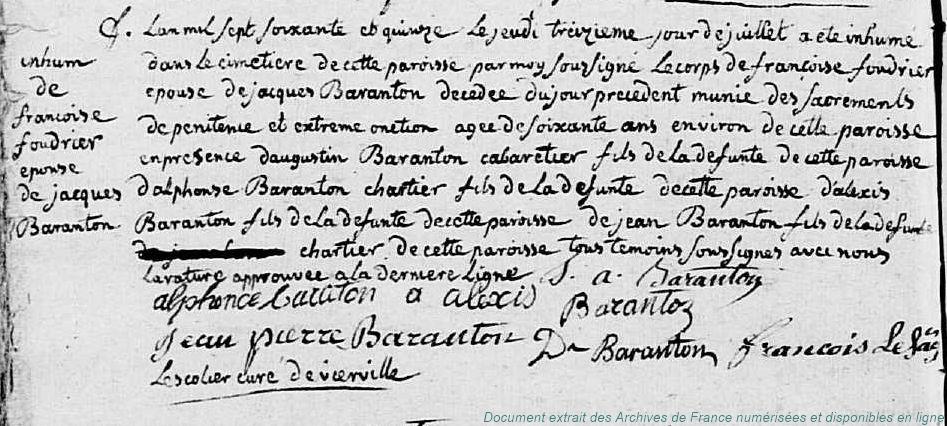 inhum
de
francoise
foudrier
epouse
de jacques
Baranton
L'an mil sept soixante et quinze le jeudi treizieme jour de juillet a ete inhume
dans le cimetiere de cette paroisse par moy soussigne le corps de françoise foudrier
epouse de jacques Baranton decedee du jour precedent munie des sacrements
de penitence et extreme onction agee de soixante ans environ de cette paroisse
en presence d'augustin Baranton cabaretier fils de la defunte de cette paroisse
d'alphonse Baranton chartier fils de la defunte de cette paroisse d'alexis
Baranton fils de la defunte de cette paroisse de jean Baranton fils de la defunte
chartier de cette paroisse tous temoins soussignes avec nous
la rature approuvee a la derniere ligne J. a. Baranton
alphonce baratton a alexis Baranton
jean pierre Baranton Dn Baranton francois Le
Lescolier curé de vierville
Document extrait des Archives de France numérisées et disponibles en ligne